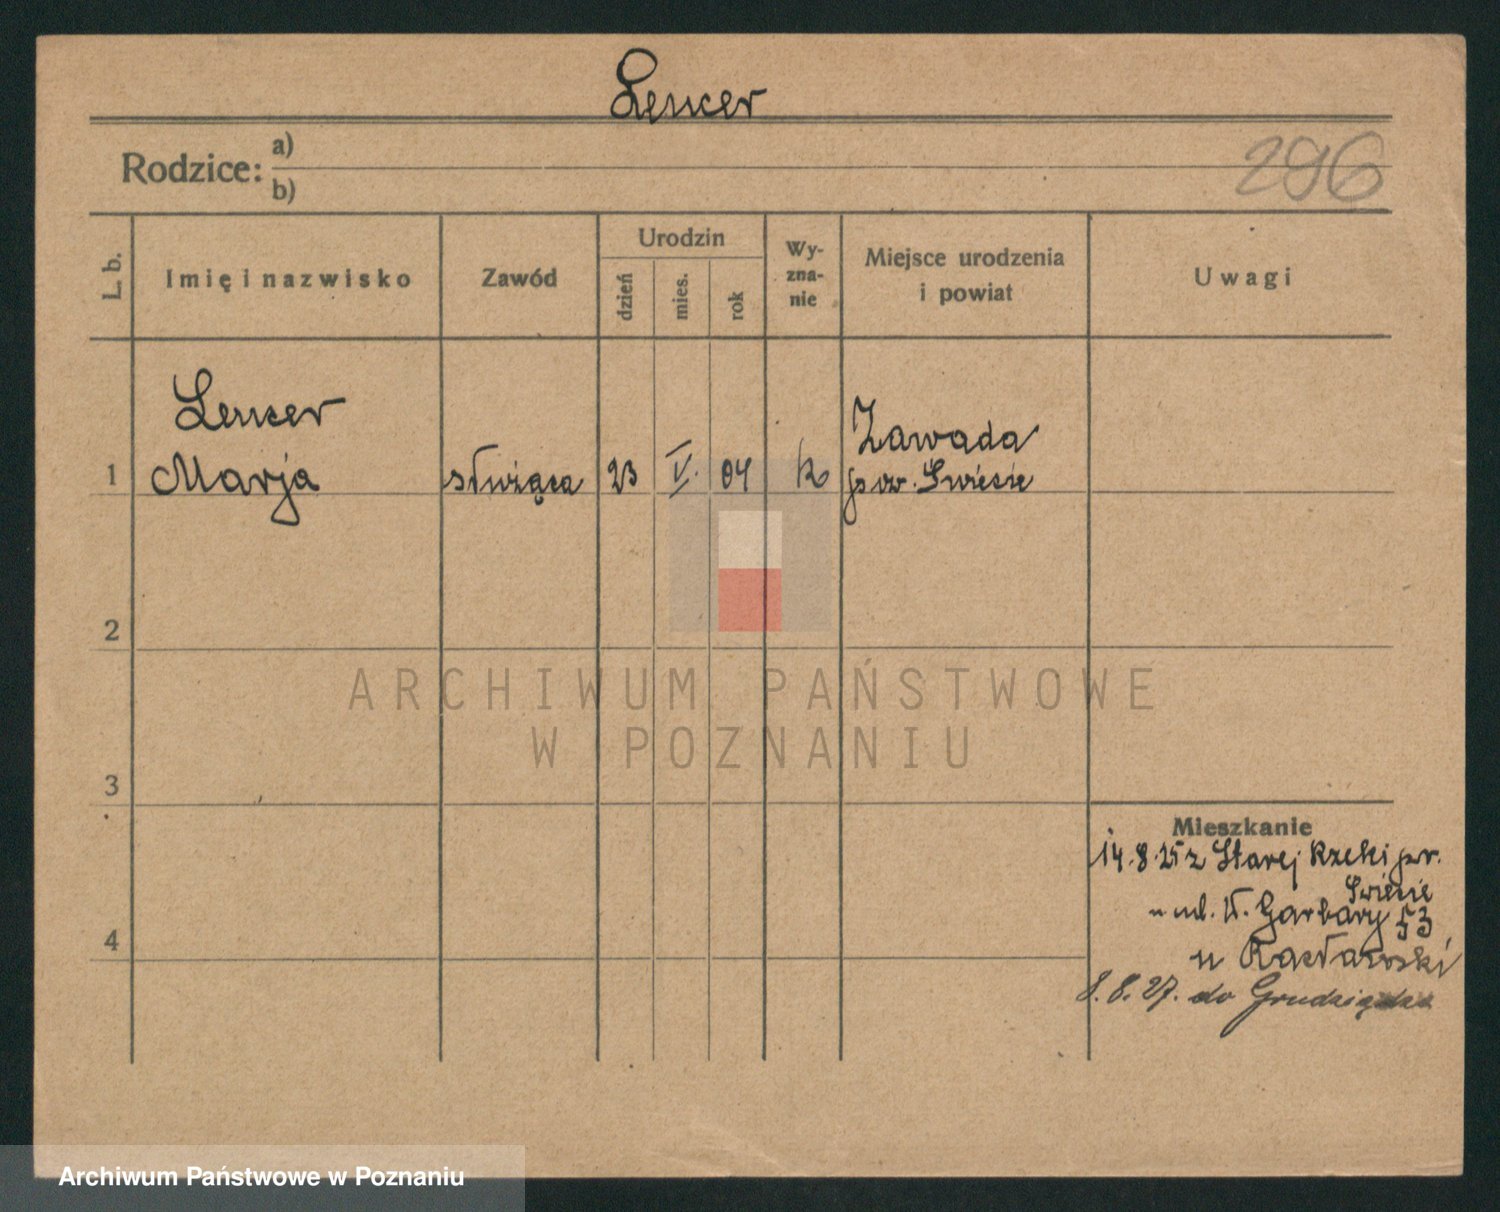 Lencer
Rodzice: a)
b)
296
L. b.
Imię i nazwisko
Zawód
Urodzin
dzień
mies.
rok
Wy-
zna-
nie
Miejsce urodzenia
i powiat
Uwagi
Lencer
1 Marja służąca 23 V. 04 k Zawada
pow. Świecie
2
3
4
Mieszkanie
14.8.25 z Starej Rzeki pow.
Świecie
n ul. W. Garbary 53
u Racławski
8.8.27. do Grudziądza
ARCHIWUM PAŃSTWOWE
W POZNANIU
Archiwum Państwowe w Poznaniu